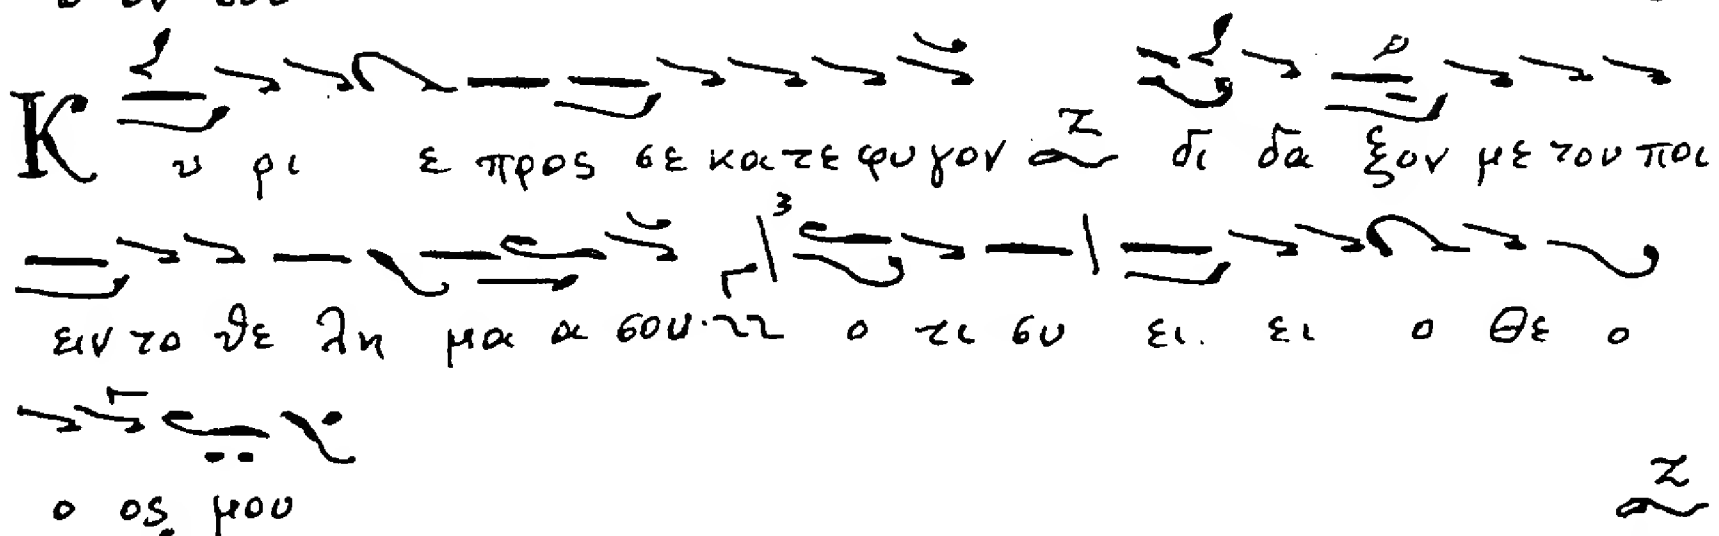 Κ υ ρι ε προς σε κα τε φυ γον Ζ δι δα ξον με του ποι
ειν το θε λη μα α σου. ο τι συ ει. ει ο Θε ο
ο ος μου Ζ